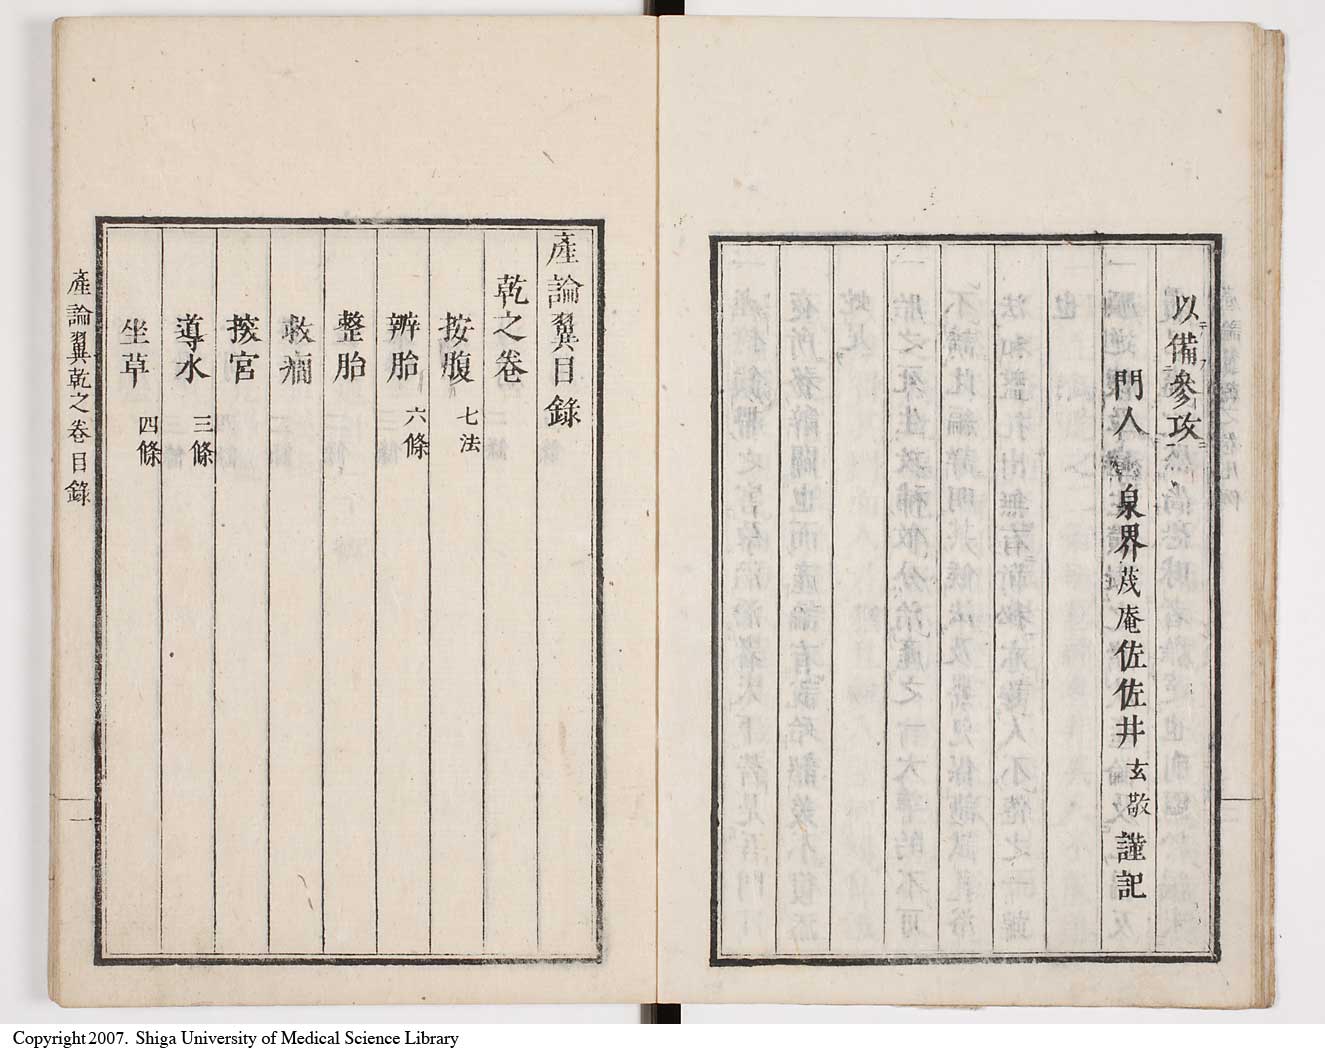 以備參攷
門人 泉界茂庵佐佐井玄敬謹記
產論翼目錄
乾之卷
按腹 七法
辨胎 六條
整胎
救癇
探宮
導水 三條
坐草 四條
產論翼乾之卷目錄
一
Copyright 2007. Shiga University of Medical Science Library